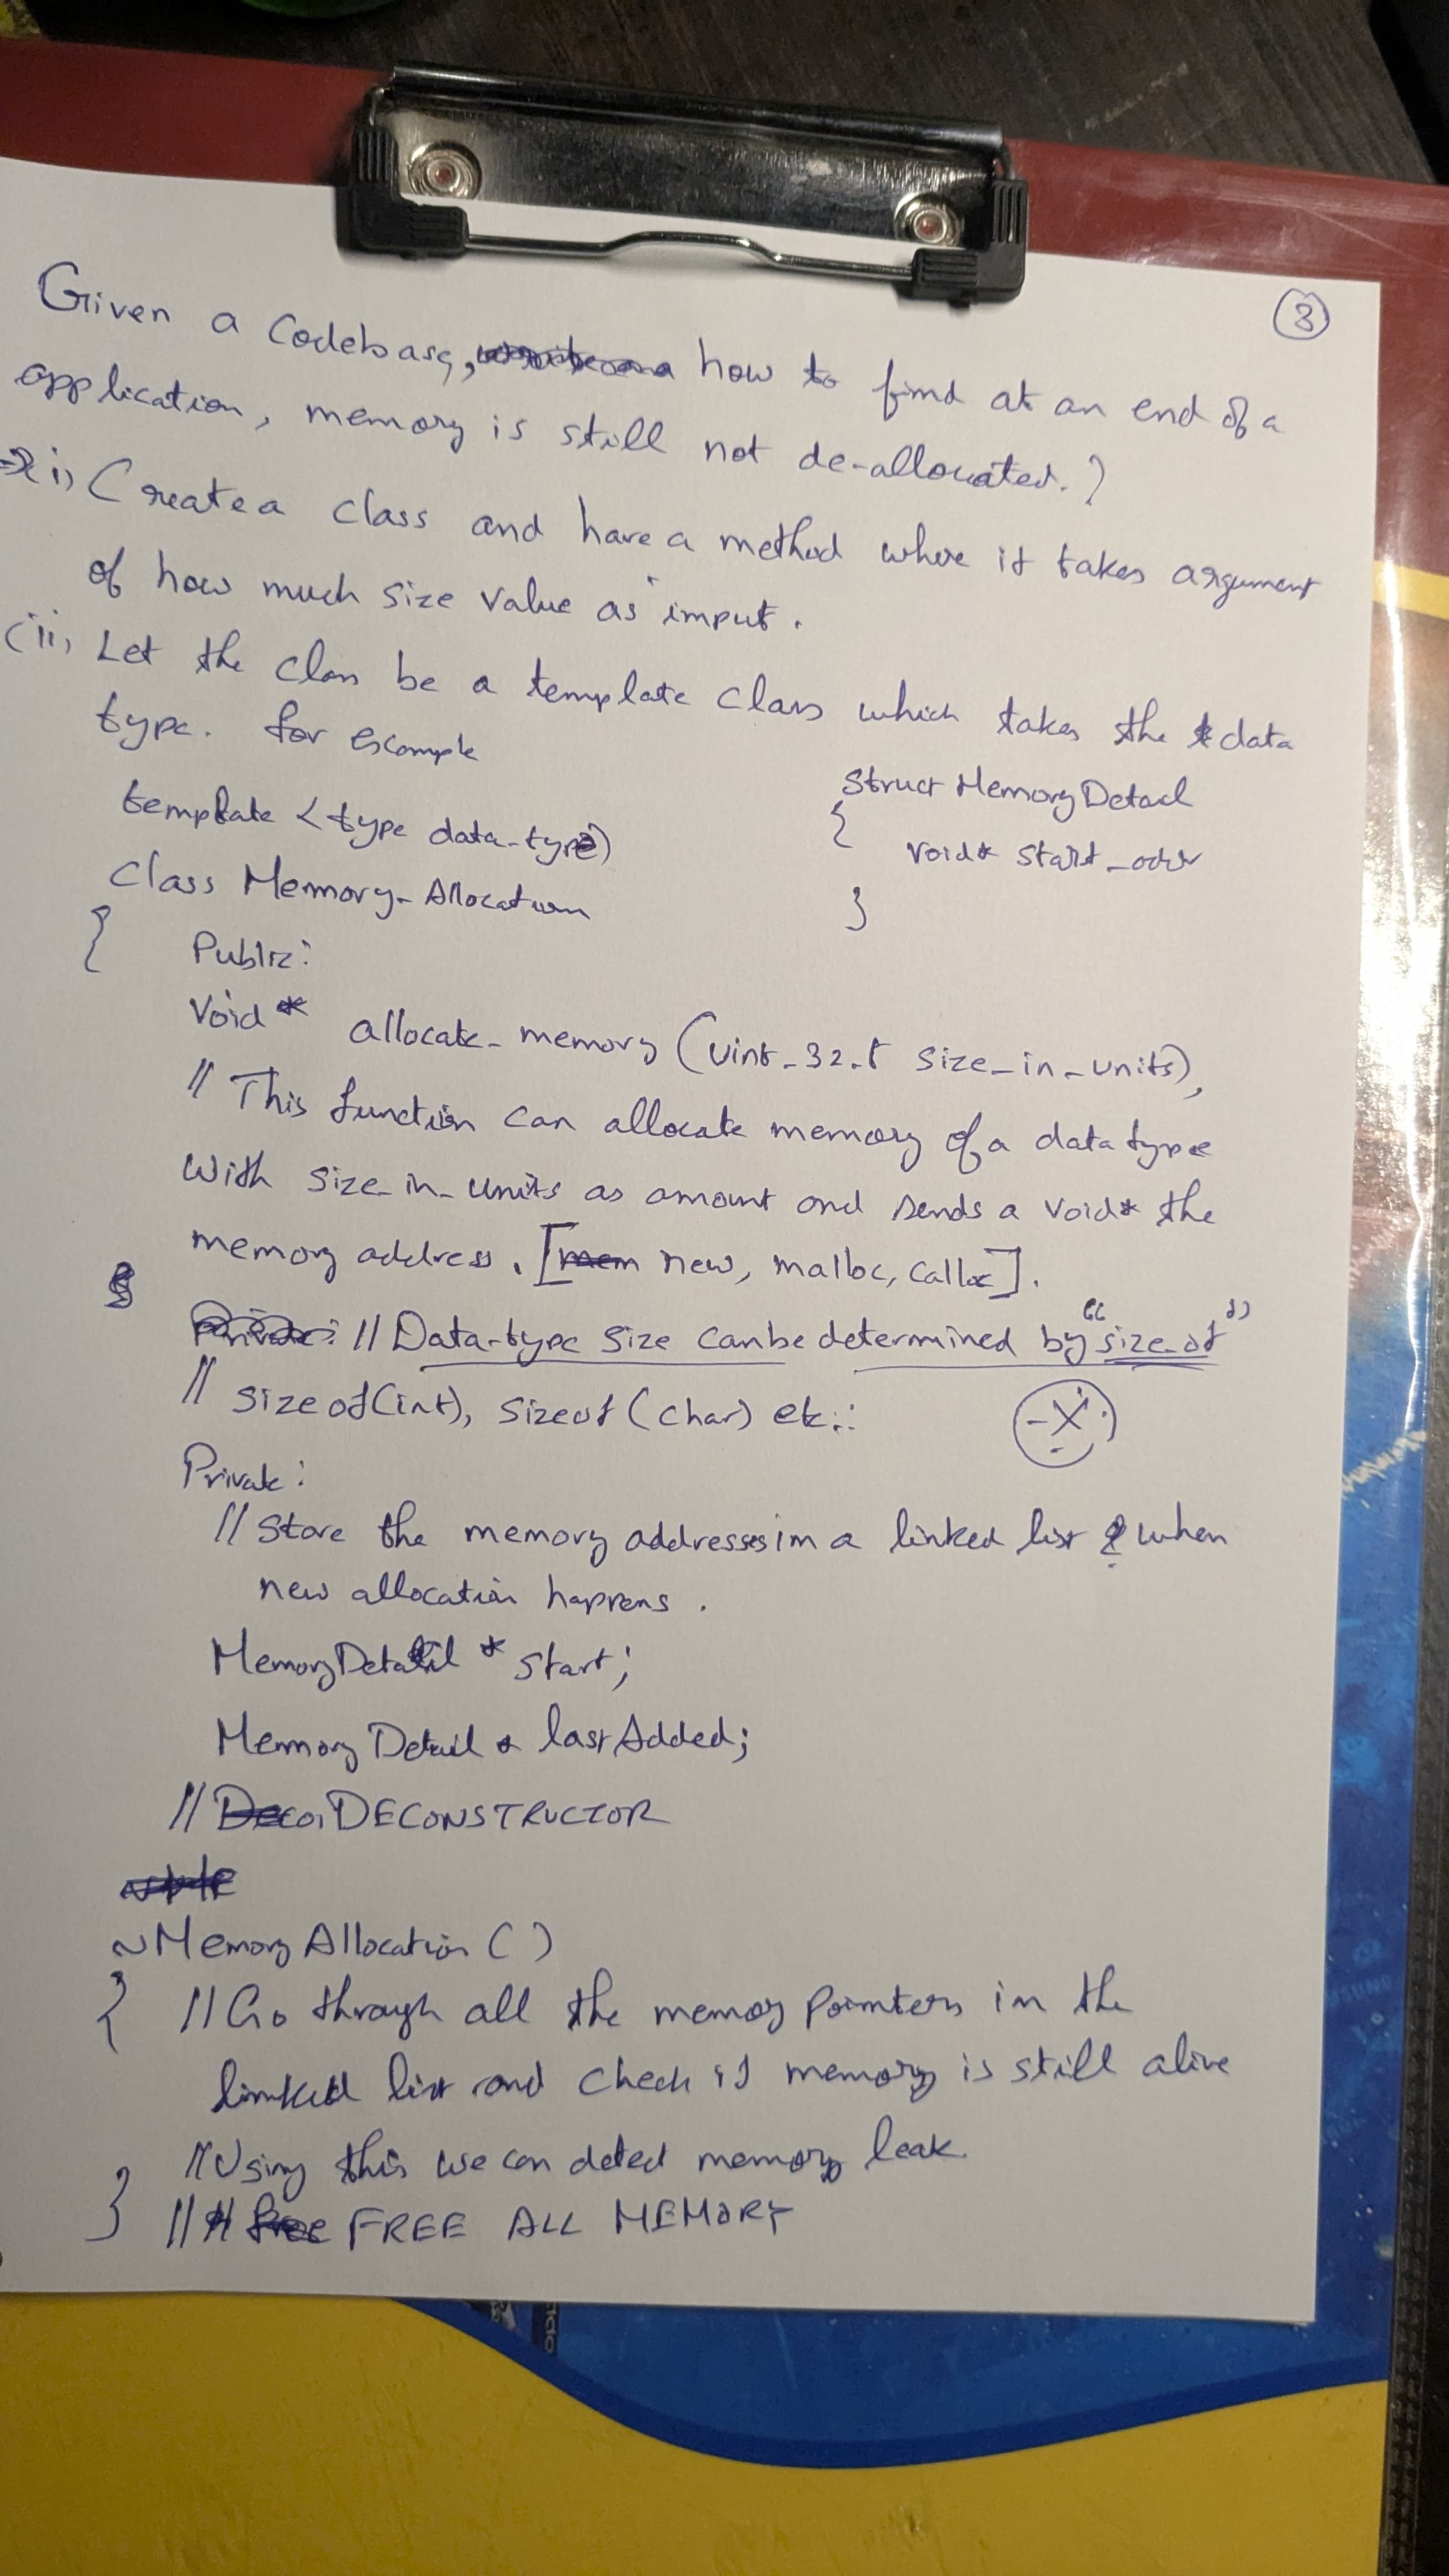 3
Given a Codebase, how to find at an end of a
application, memory is still not de-allocated.?
→ i) Create a class and have a method where it takes argument
of how much size value as input.
(ii) Let the class be a template class which takes the data
type. for example
template <type data-type)
Class Memory-Allocation
{
Struct MemoryDetail
{
void* start_addr
}
Public:
Void * allocate_memory (uint_32_t size_in_units),
// This function can allocate memory of a data type
with size_in_units as amount and sends a void* the
memory address. [new, malloc, calloc].
// Data-type size can be determined by "size_of"
// sizeof(int), sizeof (char) etc.:
Private:
// Store the memory addresses in a linked list when
new allocation happens.
MemoryDetail * start;
MemoryDetail * lastAdded;
// DECONSTRUCTOR
~MemoryAllocation ( )
{ // Go through all the memory pointers in the
linked list and check if memory is still alive
// Using this we can detect memory leak.
} // FREE ALL MEMORY